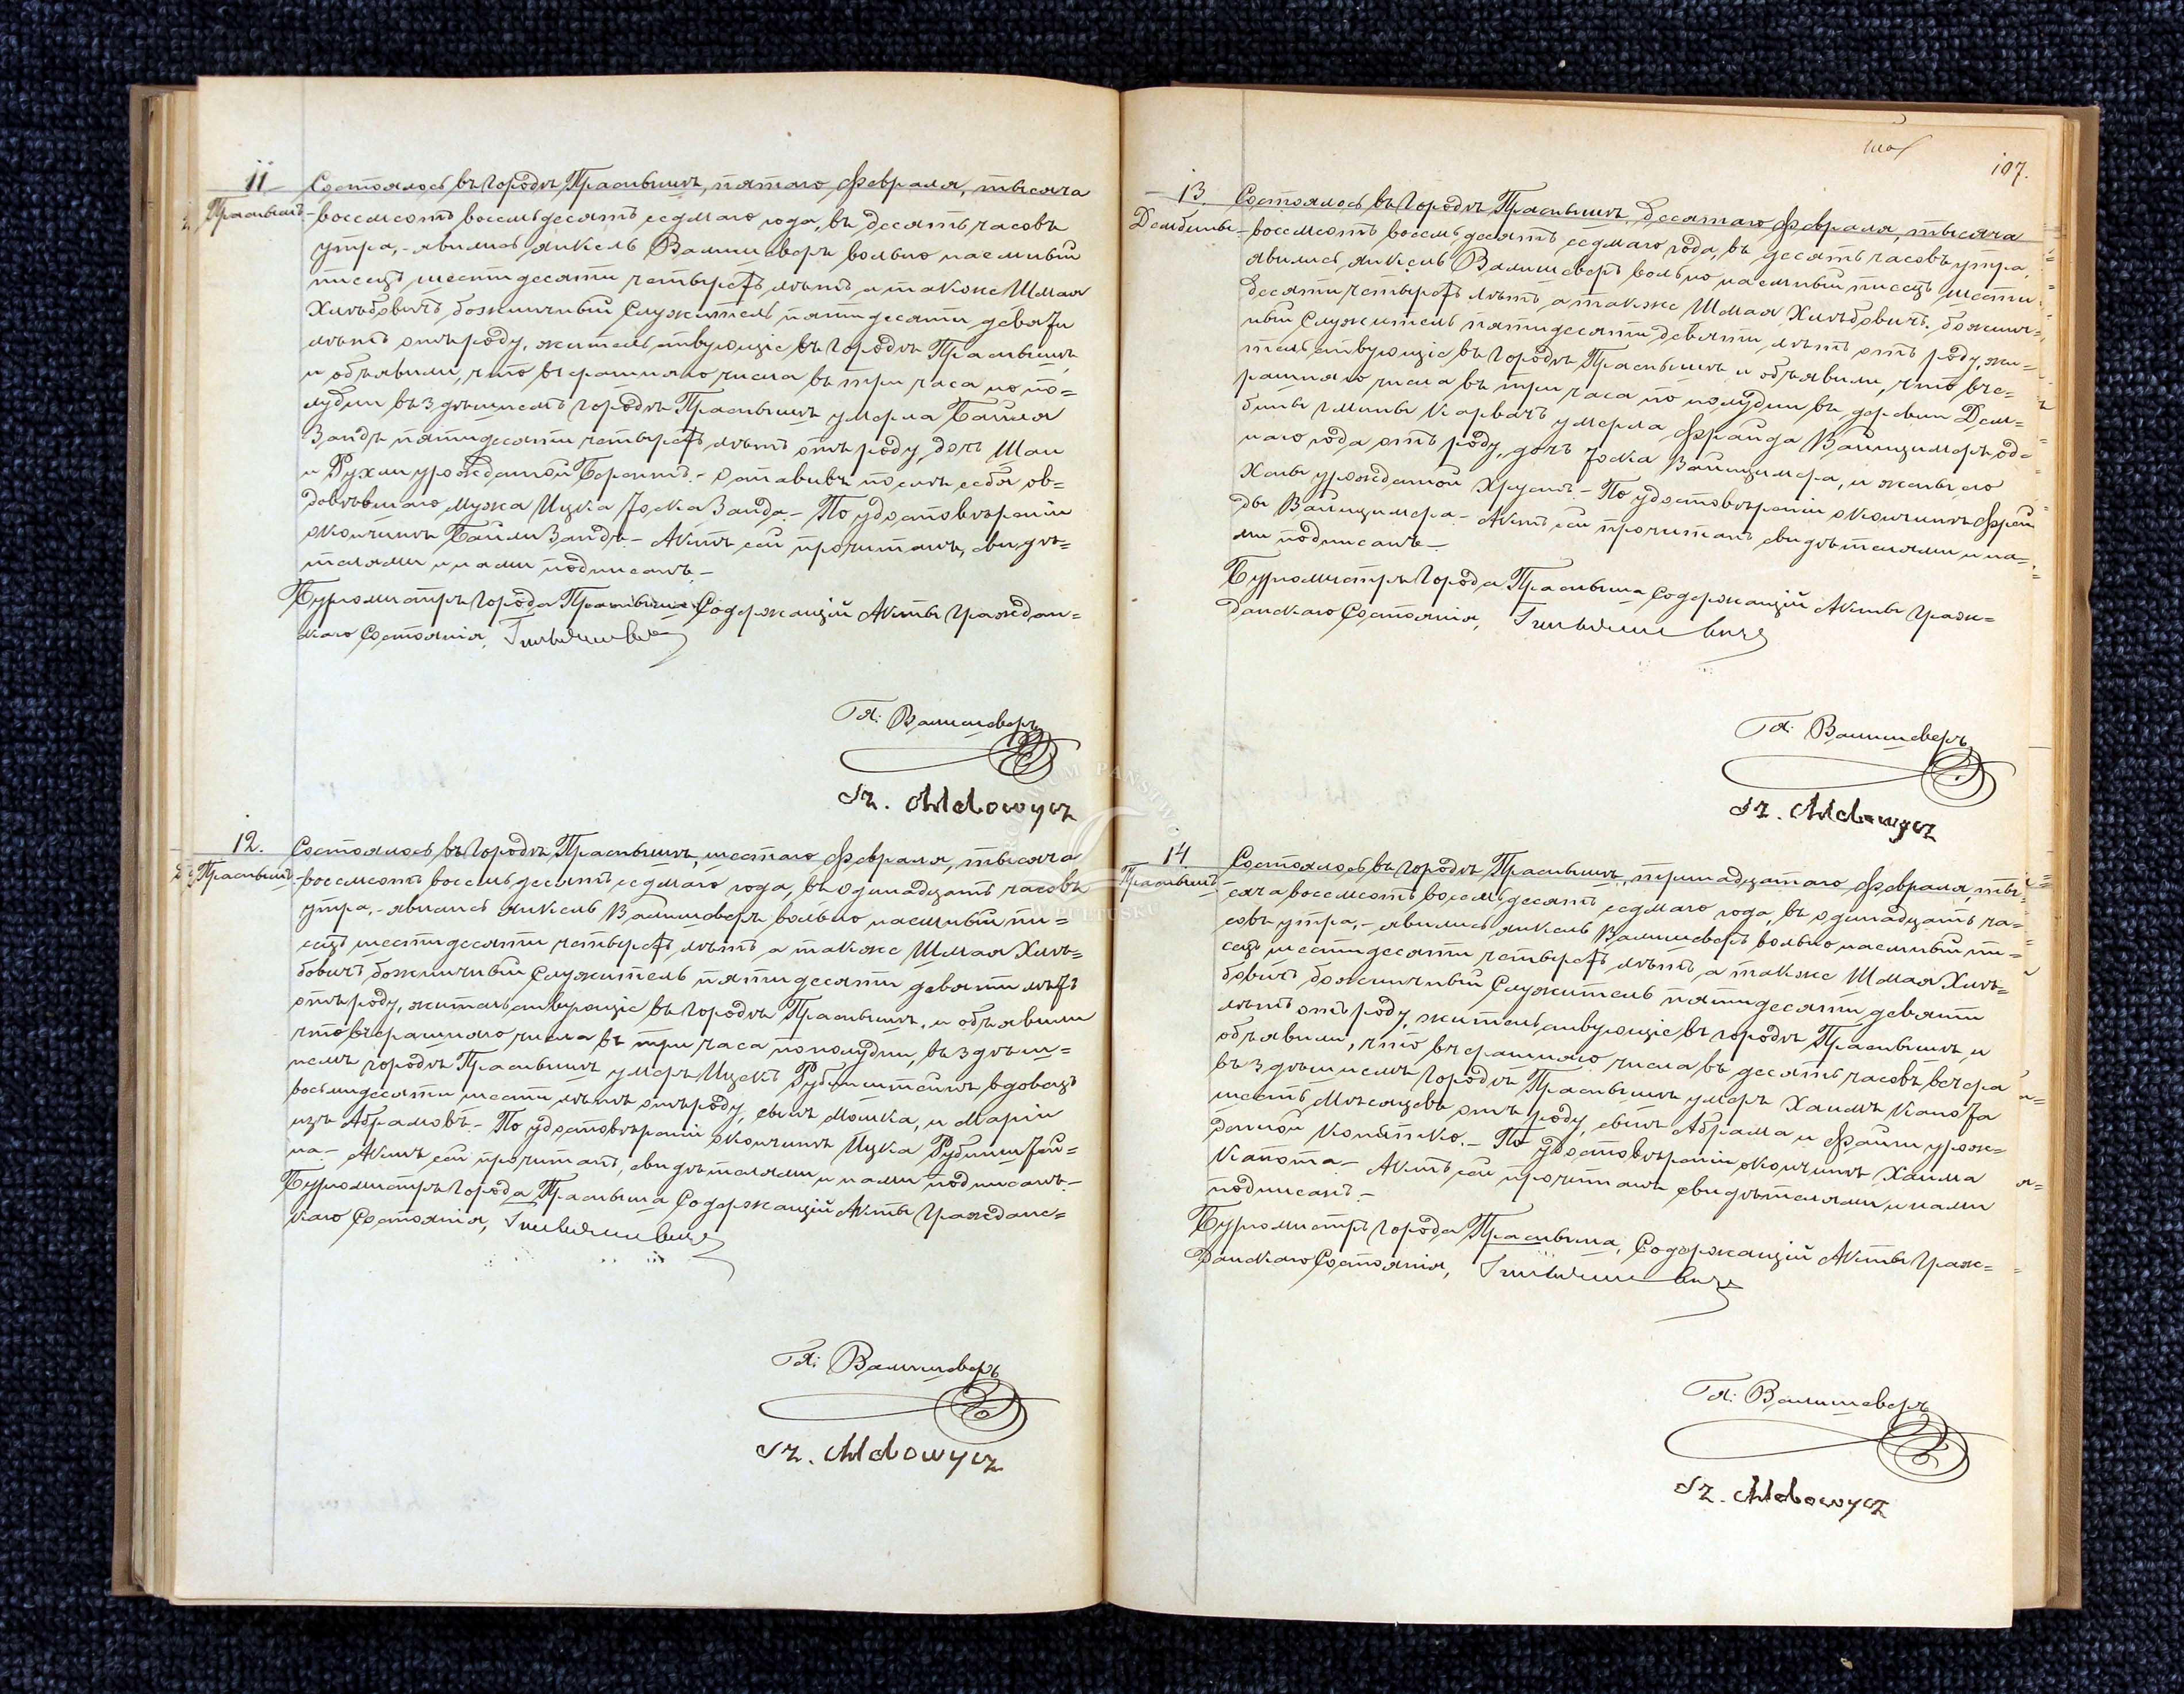 11
Праснышъ
Состоялось въ городѣ Праснышѣ, пятаго февраля, тысяча
восемсотъ восемьдесятъ седмаго года, въ десять часовъ
утра, - явились Янкель Валишеверъ вольно наемный
писецъ шестидесяти четырехъ лѣтъ а также Шмая
Хлѣбовичъ божничный служитель пятидесяти девяти
лѣтъ отъ роду, жительствующіе въ городѣ Праснышѣ
и объявили, что вчерашняго числа въ три часа по по=
лудни въ здѣшнемъ городѣ Праснышѣ умерла Байля
Зандъ пятидесяти четырехъ лѣтъ отъ роду, дочь Шаи
и Рухли урожденной Берентъ - оставивъ послѣ себя ов=
довѣвшаго мужа Ицка Іоска Занда. - По удостовѣреніи
окончинѣ Байли Зандъ - Актъ сей прочитанъ, свидѣ=
телями и нами подписанъ. -
Бургомистръ города Прасныша Содержащій Акты Граждан=
скаго Состоянія,
Я: Валишеверъ
Sz. Chlebowycz
12.
Праснышъ
Состоялось въ городѣ Праснышѣ, шестаго февраля, тысяча
восемсотъ восемьдесятъ седмаго года, въ одинадцать часовъ
утра, - явились Янкель Валишеверъ вольно наемный пи=
сецъ шестидесяти четырехъ лѣтъ а также Шмая Хлѣ=
бовичъ божничный служитель пятидесяти девяти лѣтъ
отъ роду, жительствующіе въ городѣ Праснышѣ, и объявили
что вчерашняго числа въ три часа пополудни, въ здѣш=
немъ городѣ Праснышѣ умеръ Ицекъ Рубинштейнъ вдовецъ
восьмидесяти шести лѣтъ отъ роду, сынъ Мошка, и Маріи
изъ Абрамовъ. - По удостовѣреніи окончинѣ Ицка Рубинштей=
на - Актъ сей прочитанъ, свидѣтелями и нами подписанъ -
Бургомистръ города Прасныша Содержащій Акты Гражданс=
каго Состоянія,
Я: Валишеверъ
Sz. Chlebowycz
107.
13.
Дембины
Состоялось въ городѣ Праснышѣ, десятаго февраля, тысяча
восемсотъ восемьдесятъ седмаго года, въ десять часовъ утра,
явились Янкель Валишеверъ вольно наемный писецъ шести
десяти четырехъ лѣтъ а также Шмая Хлѣбовичъ. божнич=
ный служитель пятидесяти девяти лѣтъ отъ роду, жи=
тельствующіе въ городѣ Праснышѣ и объявили, что вче=
рашняго числа въ три часа по полудни въ деревни Дем=
бины гмины Карвачъ умерла Фрайда Вайнцимеръ од=
наго года отъ роду, дочь Іоска Вайнцимера, и жены его
Ханы урожденной Хрусть - По удостовѣреніи окончинѣ Фрай
ды Вайнцимера - Актъ сей прочитанъ свидѣтелями и на=
ми подписанъ -
Бургомистръ города Прасныша Содержащій Акты Граж=
данскаго Состоянія,
Я: Валишеверъ
Sz. Chlebowycz
14
Праснышъ
Состоялось въ городѣ Праснышѣ, тринадцатаго февраля, ты=
сяча восемсотъ восемьдесятъ седмаго года, въ одинадцать ча=
совъ утра, - явились Янкель Валишеверъ вольно наемный пи=
сецъ шестидесяти четырехъ лѣтъ а также Шмая Хлѣ=
бовичъ божничный служитель пятидесяти девяти
лѣтъ отъ роду, жительствующіе въ городѣ Праснышѣ и
объявили, что вчерашняго числа въ десять часовъ вечера
въ здѣшнемъ городѣ Праснышѣ умеръ Хаимъ Капота
шесть мѣсяцевъ отъ роду, сынъ Абрама и Файги урож=
данной Копытко. - По удостовѣреніи окончинѣ Хаима
Капота - Актъ сей прочитанъ свидѣтелями и нами
подписанъ. -
Бургомистръ города Прасныша, Содержащій Акты Граж=
данскаго Состоянія,
Я: Валишеверъ
Sz. Chlebowycz